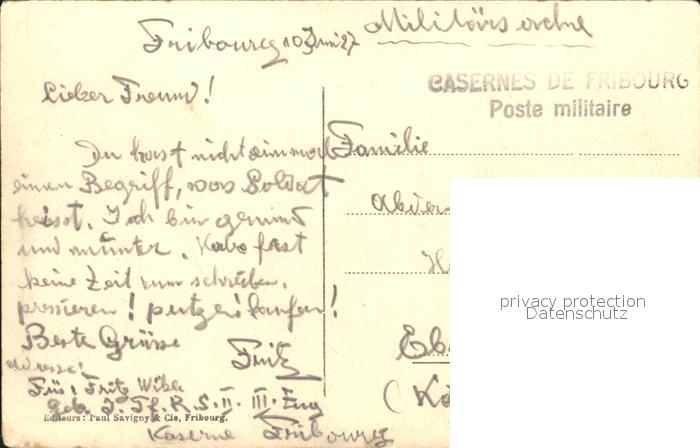 Fribourg 10 Juni 27 Militärsache
CASERNES DE FRIBOURG
Poste militaire
Lieber Freund!
Du hast nicht einmal
einen Begriff, was Soldat
heisst. Ich bin gesund
und munter. Habe fast
keine Zeit zum schreiben.
pressieren! putzen! laufen!
Beste Grüsse
Fritz
Adresse:
Füs. Fritz
Geb. J. Tf. R. S. II. III. Zug
Kaserne Fribourg
Editeurs: Paul Savigny & Cie, Fribourg.
Familie
privacy protection
Datenschutz